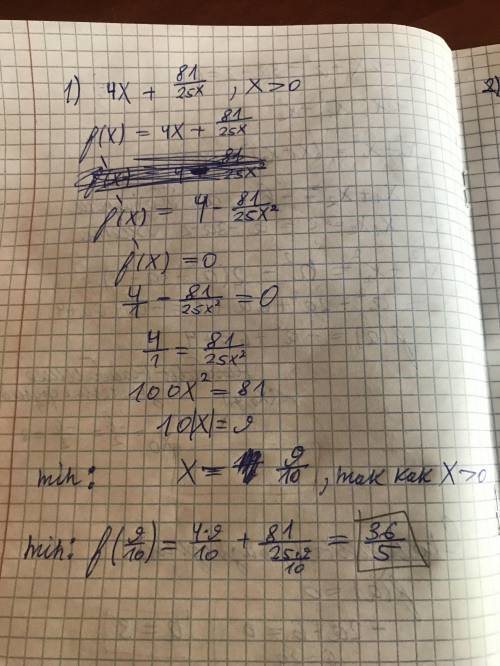 1) 4x + 81/25x , x>0
f(x) = 4x + 81/25x
f`(x) = 4 - 81/25x²
f`(x) = 0
4/1 - 81/25x² = 0
4/1 = 81/25x²
100x² = 81
10|x| = 9
min: x = 9/10 , так как x>0
min: f(9/10) = 4·9/10 + 81/(25·9/10) = 36/5
2)